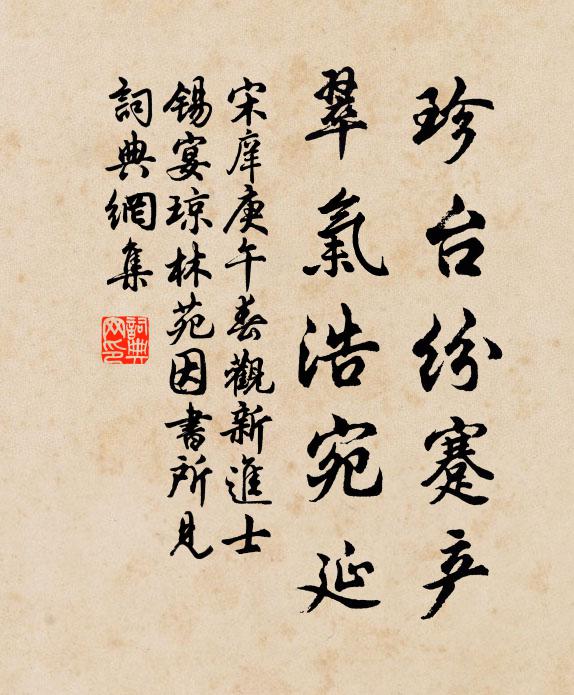 珍台纷蹇产
翠氣浩宛延
宋庠庚午春觀新進士
锡宴琼林苑因書所見
詞典網集
詞典网印